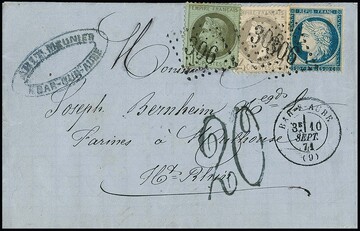 EMPIRE FRANÇAIS
REPUB. FRANC.
306
306
306
MEUNIER
BAR-SUR-AUBE
Monsieur
Joseph Bernheim
Farines à Mulhouse
Ht Rhin
20
BAR-S-AUBE
3E 10
SEPT.
71
(9)